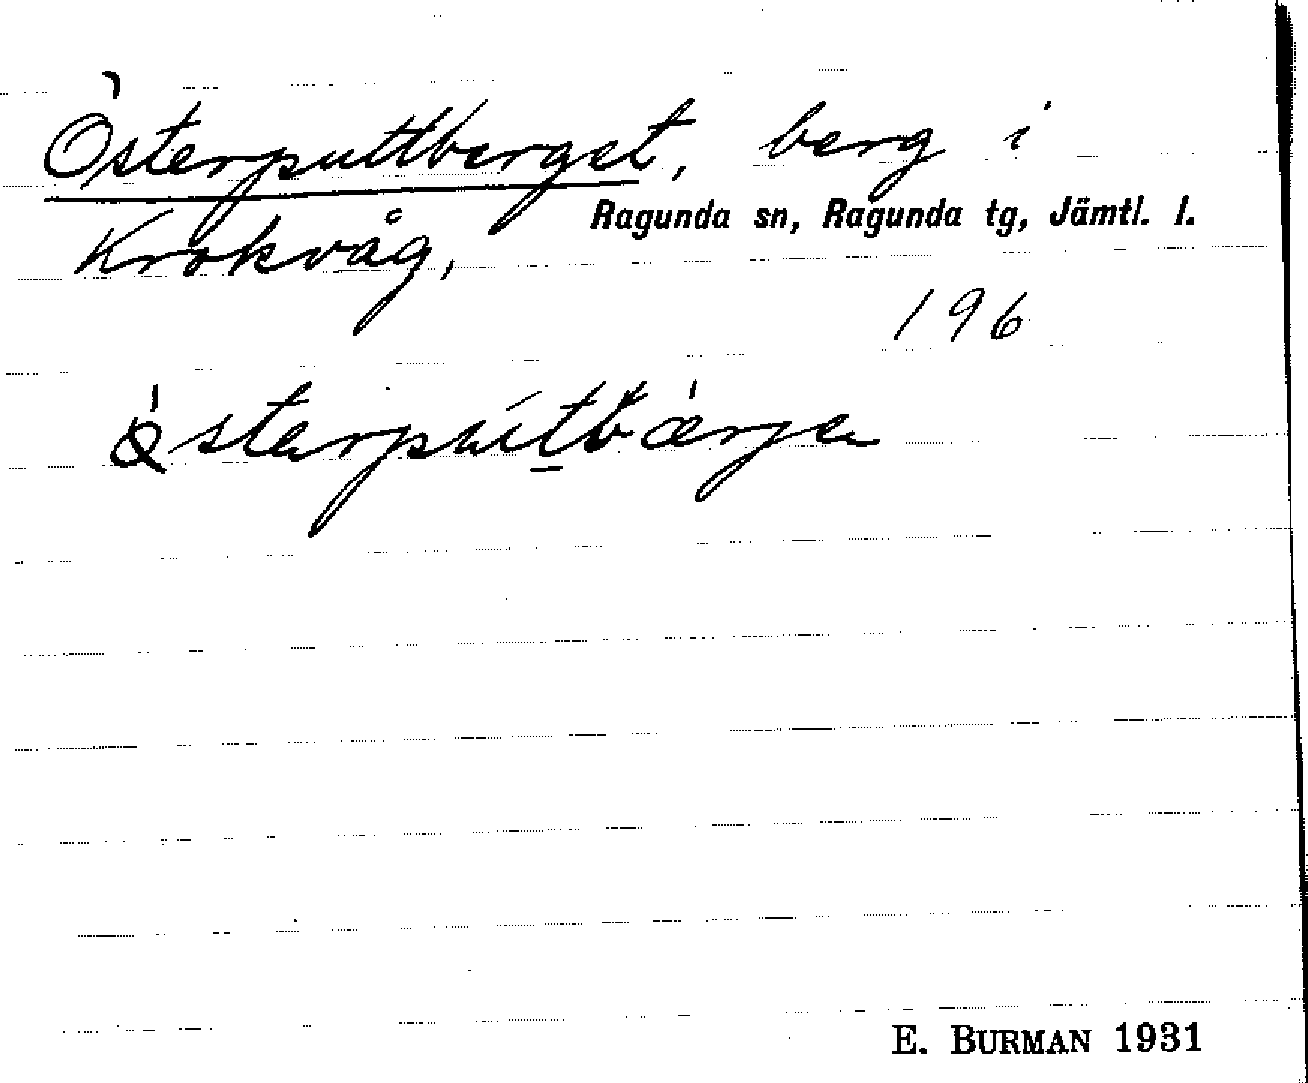 Österputtberget, berg i
Ragunda sn, Ragunda tg, Jämtl. l.
Krokvåg,
196
E. BURMAN 1931